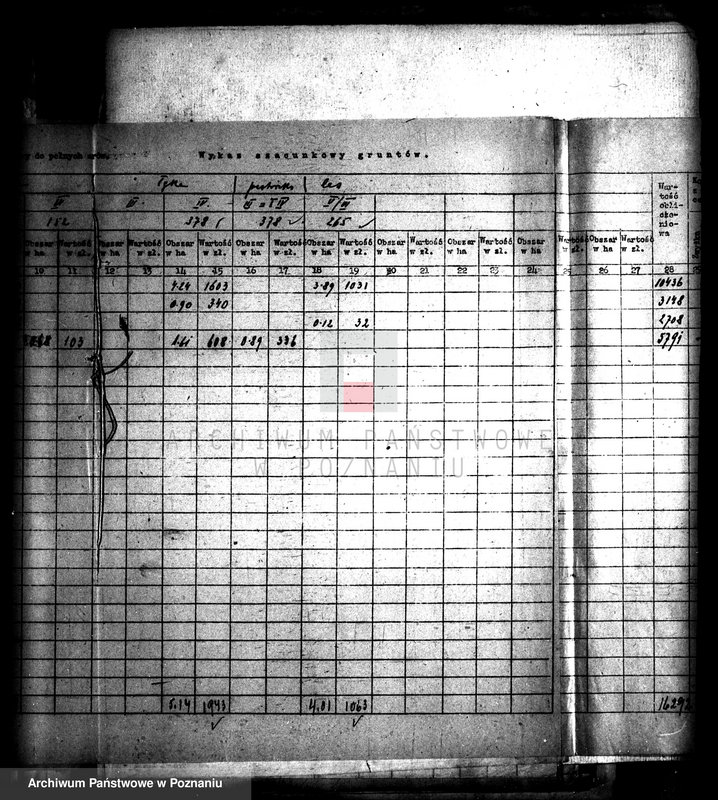 do polnych
Wykaz szacunkowy gruntów.
łąka pastwisko las
IV IV V/VI
152 378 378 265
Wartość obliczeniowa
Obszar w ha Wartość w zł. Obszar w ha Wartość w zł. Obszar w ha Wartość w zł. Obszar w ha Wartość w zł. Obszar w ha Wartość w zł. Obszar w ha Wartość w zł. Obszar w ha Wartość w zł. Obszar w ha Wartość w zł. Obszar w ha Wartość w zł.
10 11 12 13 14 15 16 17 18 19 20 21 22 23 24 25 26 27 28
4.24 1603 3.89 1031 10436
0.90 340 3148
0.12 32 2708
103 608 0.89 336 5791
5.14 1943 4.01 1063 16292
ARCHIWUM PAŃSTWOWE
W POZNANIU
Archiwum Państwowe w Poznaniu